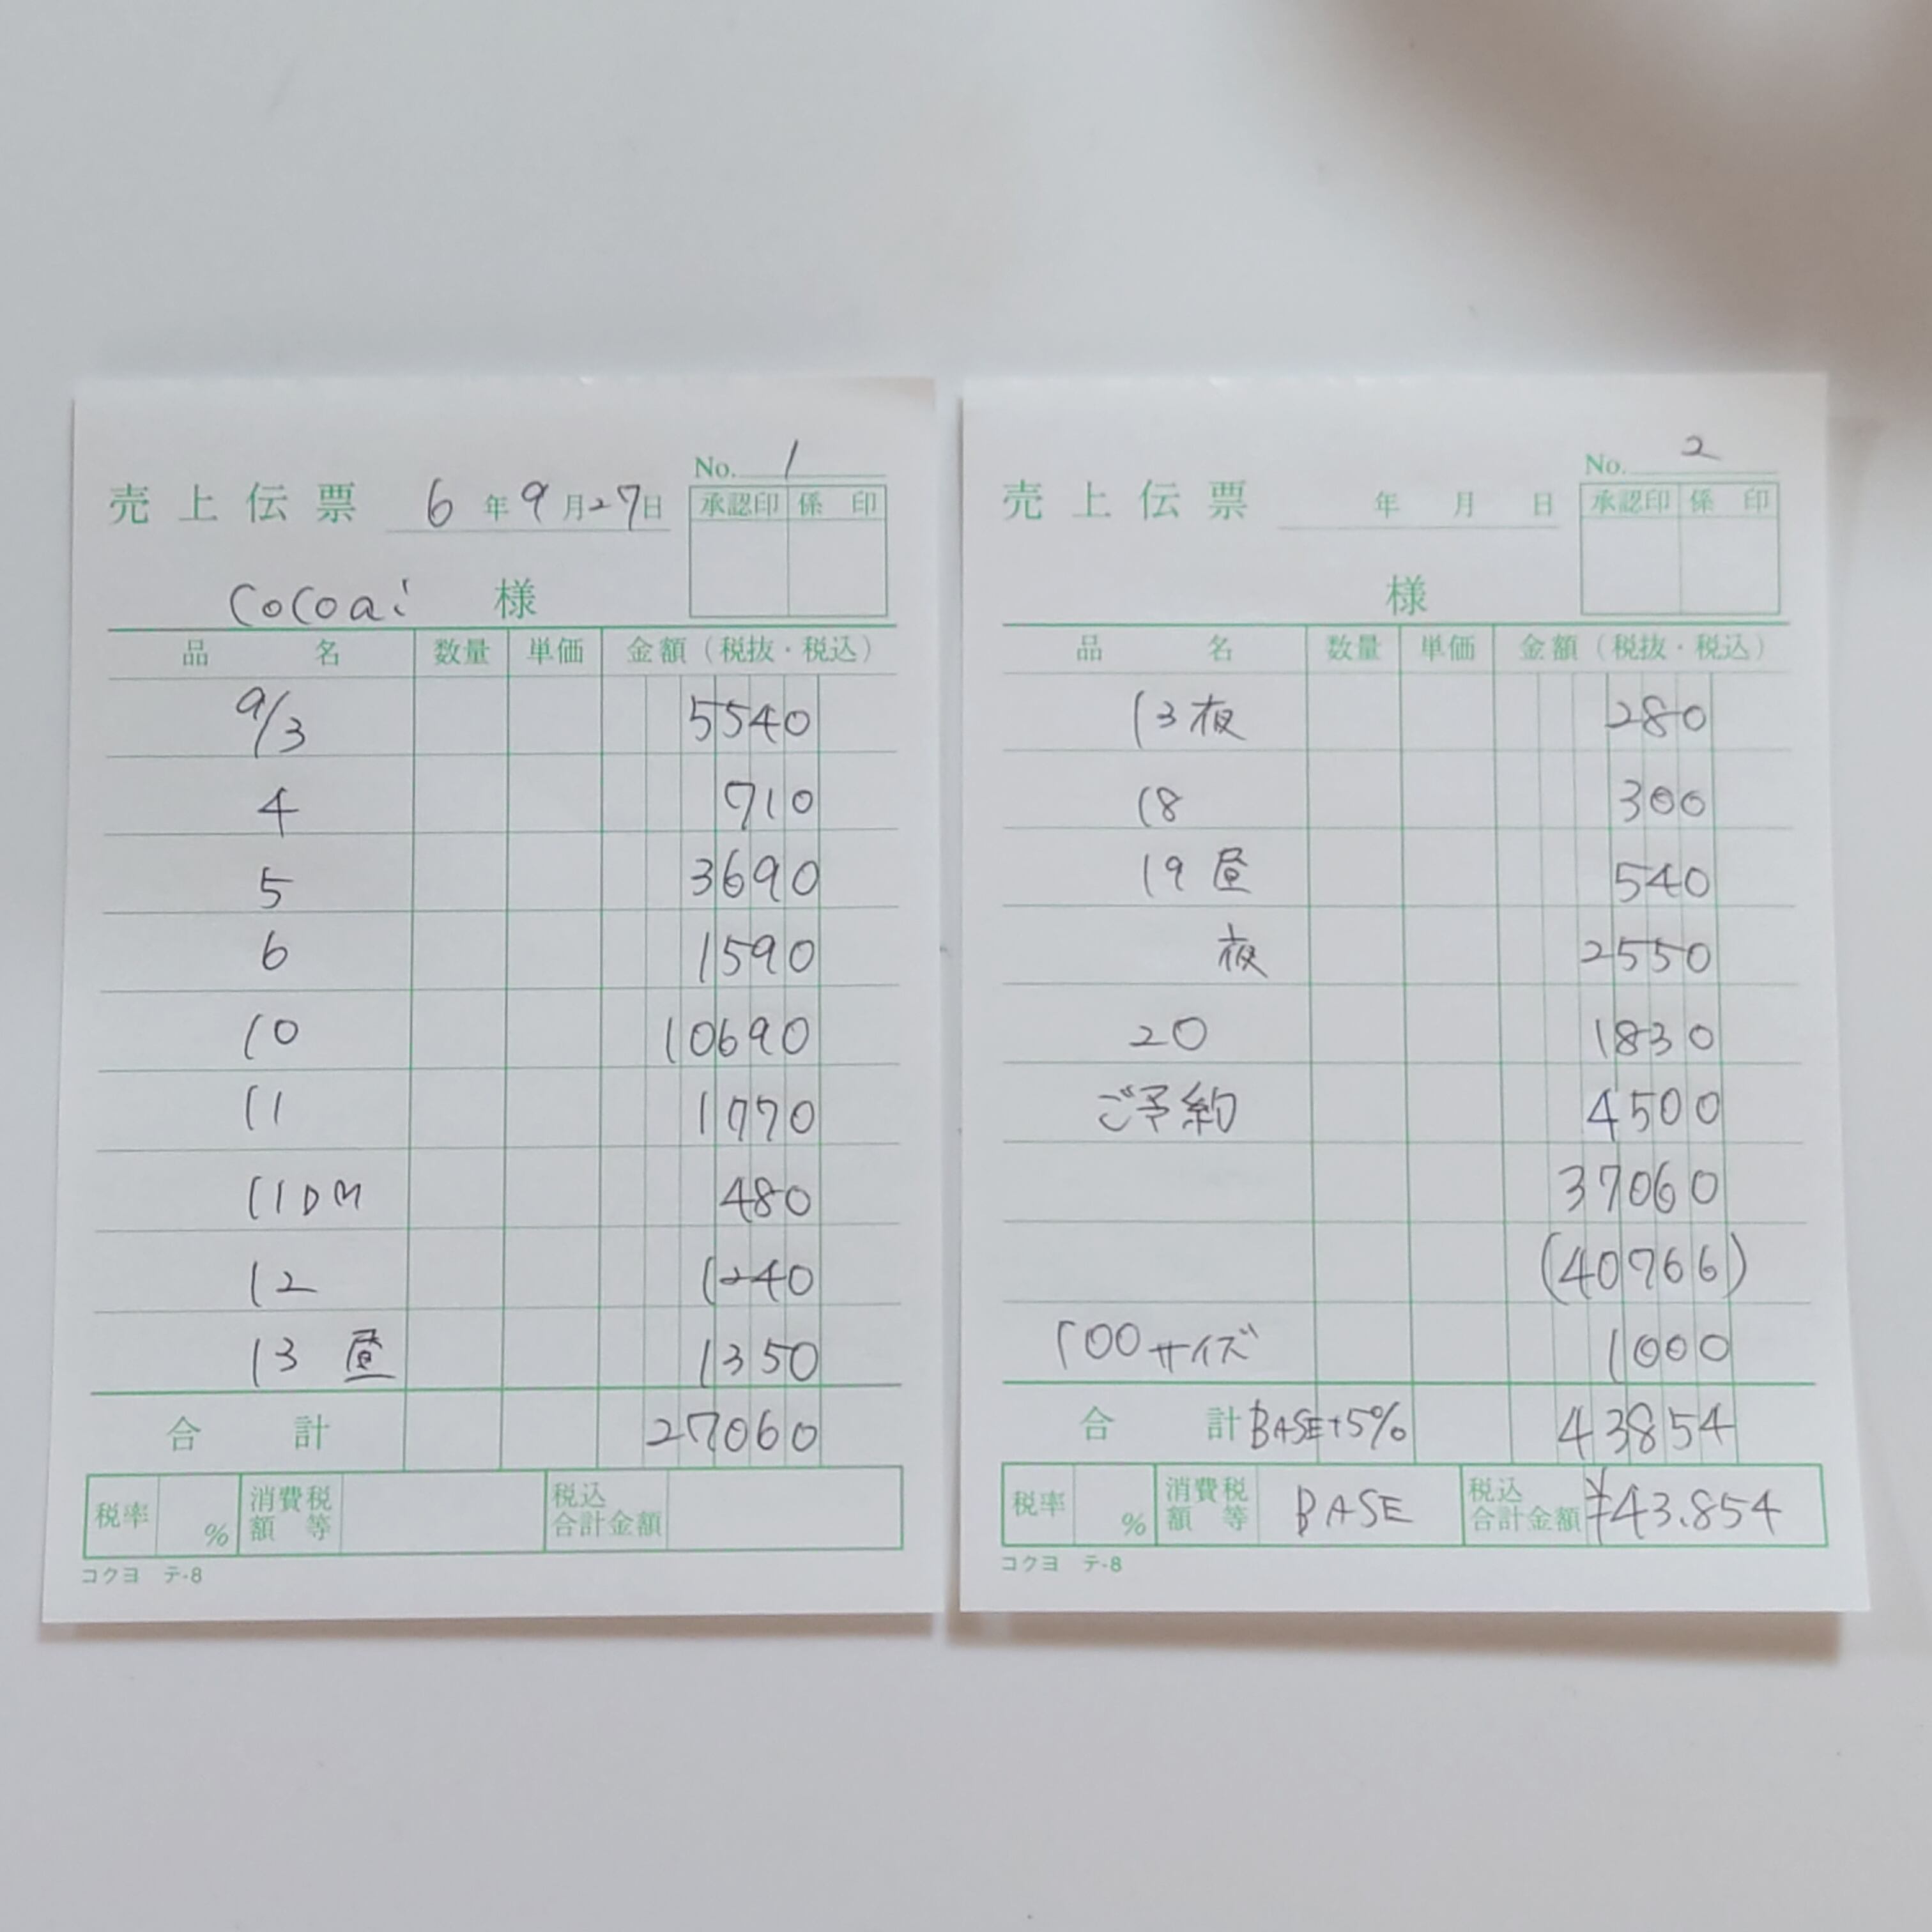 No. 1
売上伝票 6年9月27日
承認印 係印
cocoai 様
品名 数量 単価 金額(税抜・税込)
9/3 5540
4 710
5 3690
6 1590
10 10690
11 1770
11DM 480
12 1240
13 昼 1350
合計 27060
税率 % 消費税額等 税込合計金額
コクヨ テ-8
No. 2
売上伝票 年 月 日
承認印 係印
様
品名 数量 単価 金額(税抜・税込)
13夜 280
18 300
19 昼 540
夜 2550
20 1830
ご予約 4500
37060
(40766)
100サイズ 1000
合計 BASE+5% 43854
税率 % 消費税額等 BASE 税込合計金額 ¥43.854
コクヨ テ-8